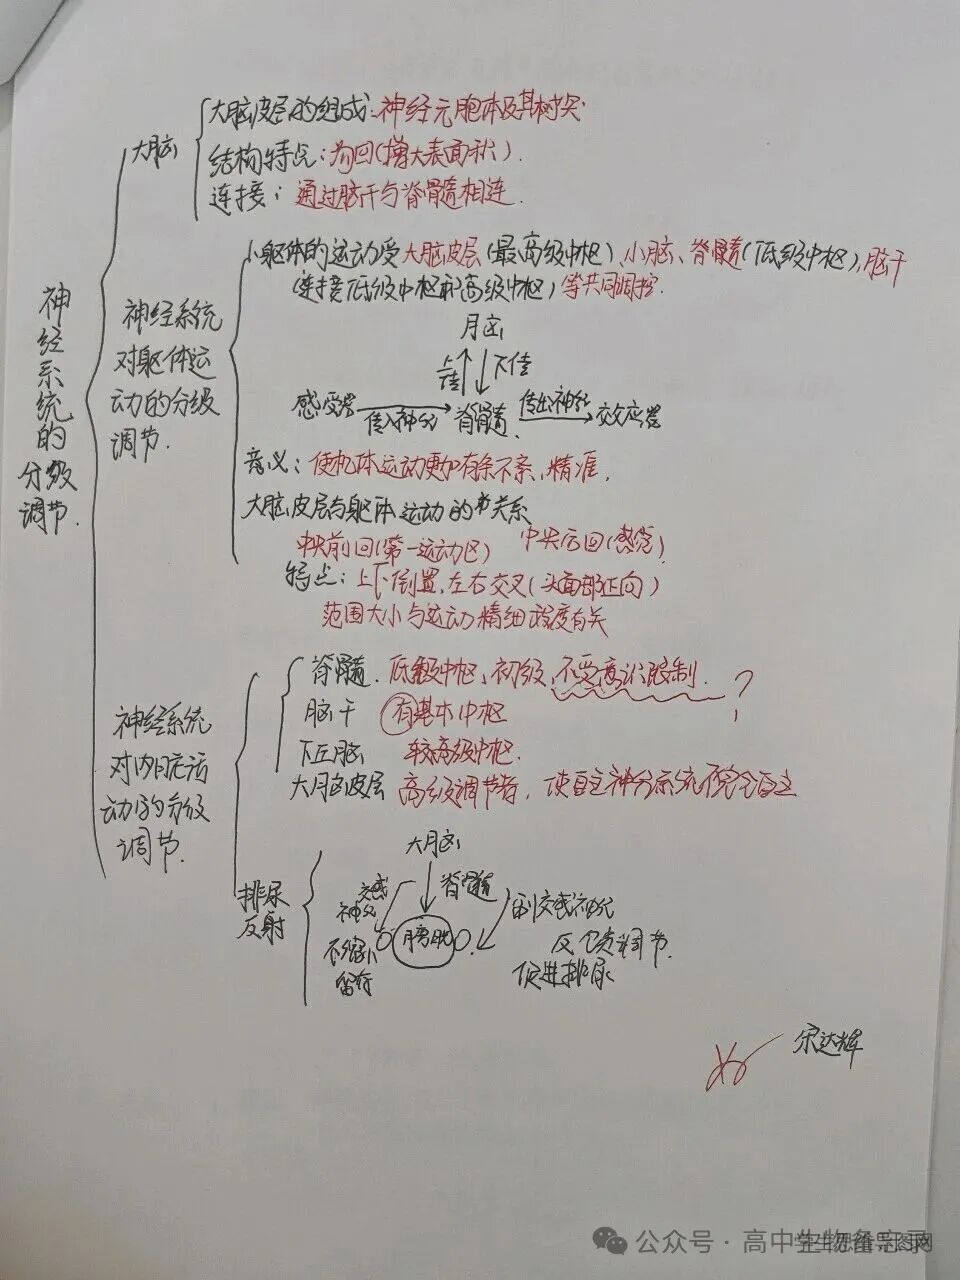 神经系统的分级调节.
大脑
大脑皮层的组成:神经元胞体及其树突
结构特点:沟回(增大表面积).
连接:通过脑干与脊髓相连
神经系统对躯体运动的分级调节.
躯体的运动受大脑皮层(最高级中枢),小脑、脊髓(低级中枢),脑干
(连接低级中枢和高级中枢)等共同调控.
大脑
上传 下传
感受器 传入神经 脊髓 传出神经 效应器
意义:使机体运动更加有条不紊、精准.
大脑皮层与躯体运动的关系
中央前回(第一运动区) 中央后回(感觉)
特点:上下倒置,左右交叉(头面部正向)
范围大小与运动精细程度有关
神经系统对内脏活动的分级调节.
脊髓.低级中枢、初级,不受意识限制. ?
脑干 有基本中枢
下丘脑 较高级中枢.
大脑皮层 高级调节者,使自主神经系统不完全自主
排尿反射
大脑
脊髓
交感神经
不缩小
留存
膀胱
副交感神经
反馈调节.
促进排尿
好
宋达辉
公众号·高中生物备忘录